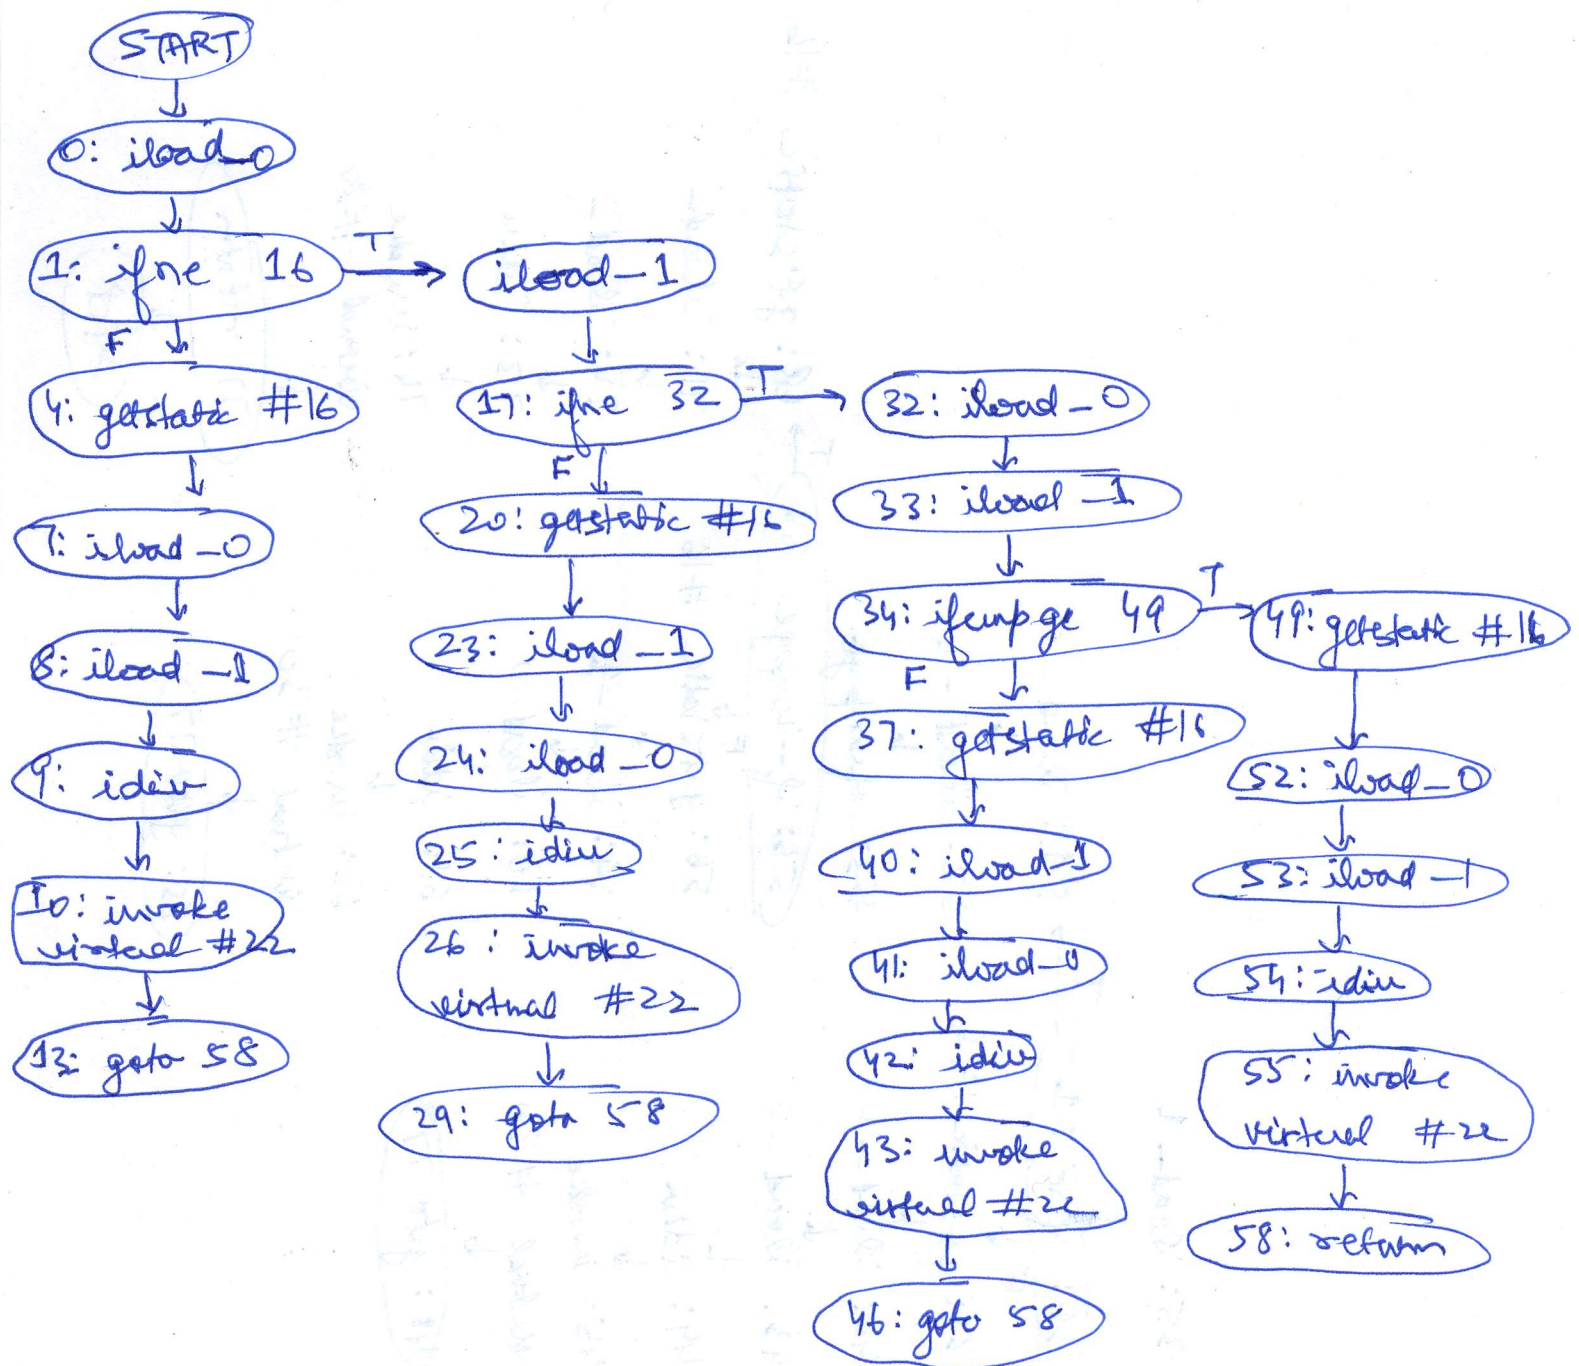 START
0: iload_0
1: ifne 16
T
F
4: getstatic #16
7: iload_0
8: iload_1
9: idiv
10: invoke
virtual #22
13: goto 58
iload_1
17: ifne 32
T
F
20: getstatic #16
23: iload_1
24: iload_0
25: idiv
26: invoke
virtual #22
29: goto 58
32: iload_0
33: iload_1
34: ifcmpge 49
T
F
37: getstatic #16
40: iload_1
41: iload_0
42: idiv
43: invoke
virtual #22
46: goto 58
49: getstatic #16
52: iload_0
53: iload_1
54: idiv
55: invoke
virtual #22
58: return